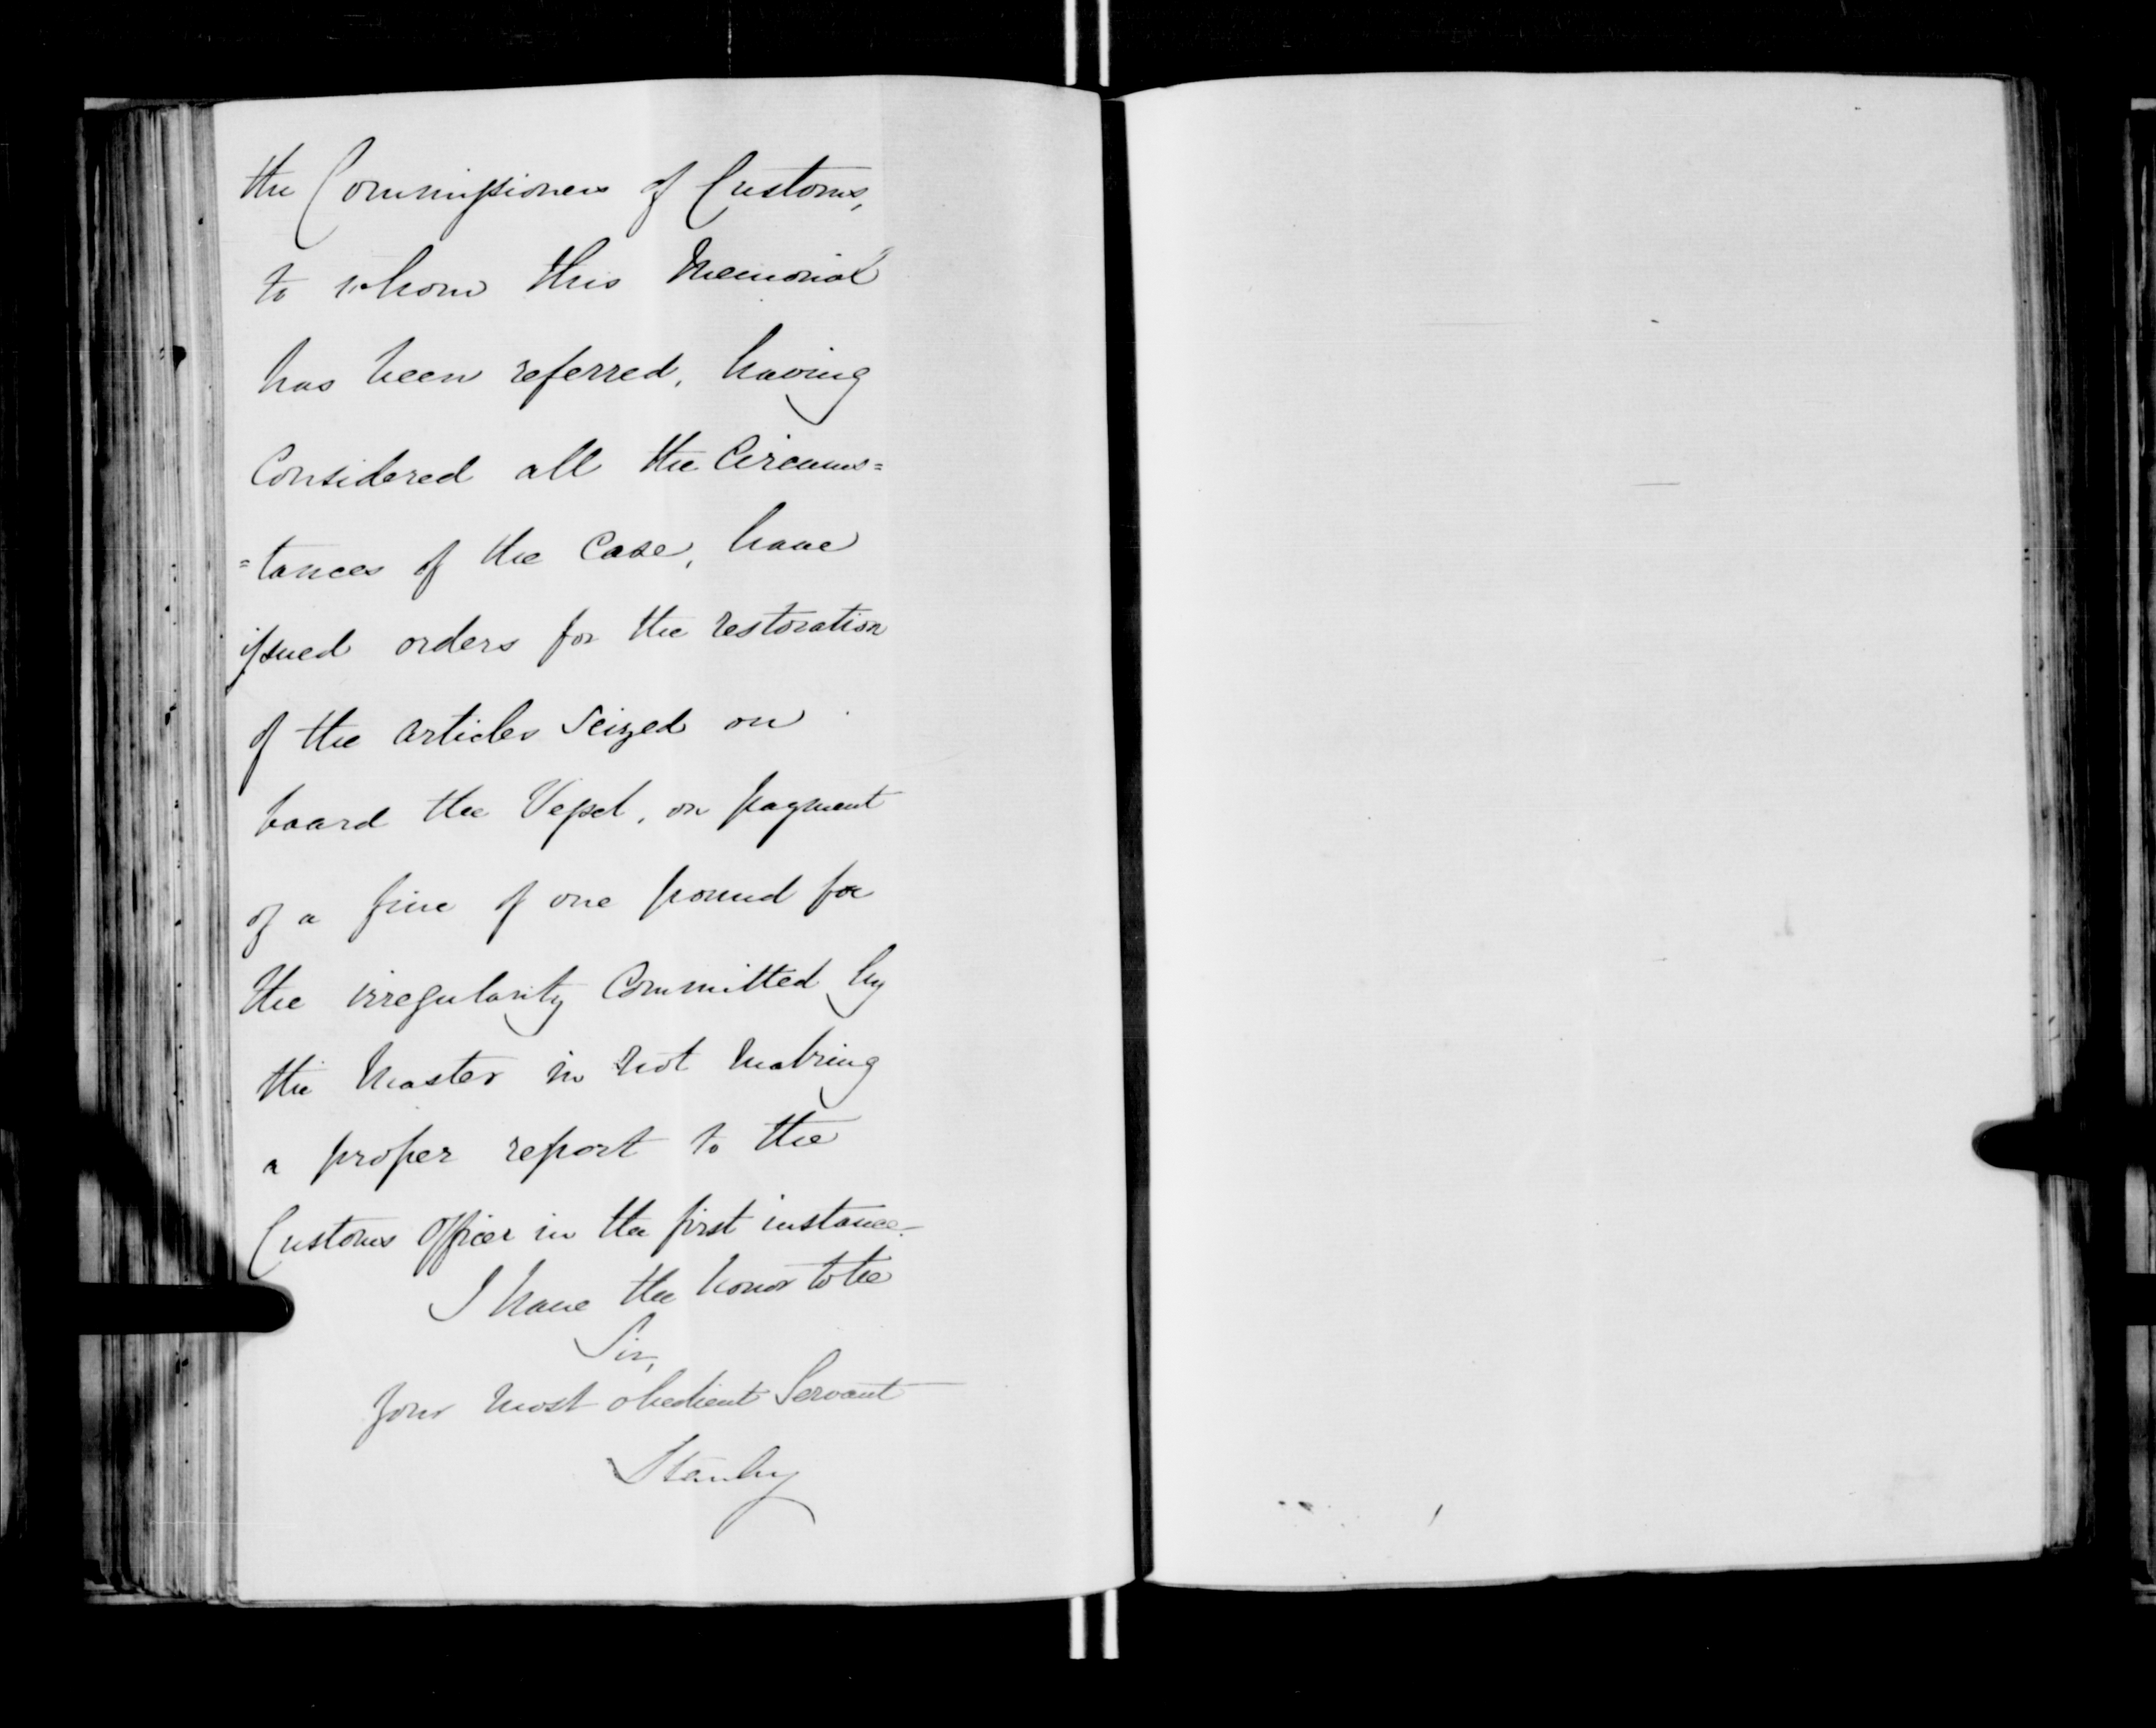 the Commissioners of Customs,
to whom this Memorial
has been referred, having
Considered all the Circums=
=tances of the Case, have
issued orders for the restoration
of the articles seized on
board the Vessel, on payment
of a fine of one pound for
the irregularity Committed by
the Master in not making
a proper report to the
Customs Officer in the first instance.
I have the honor to be
Sir,
Your most obedient Servant
Stanley